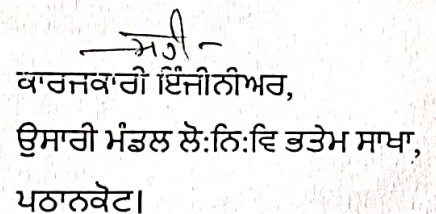 ਸਹੀ
ਕਾਰਜਕਾਰੀ ਇੰਜੀਨੀਅਰ,
ਉਸਾਰੀ ਮੰਡਲ ਲੋ:ਨਿ:ਵਿ ਭਤੇਮ ਸਾਖਾ,
ਪਠਾਨਕੋਟ।